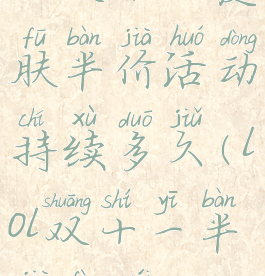 fū bàn jià huó dòng
肤半价活动
chí xù duō jiǔ
持续多久(l
shuāng shí yī bàn
ol双十一半